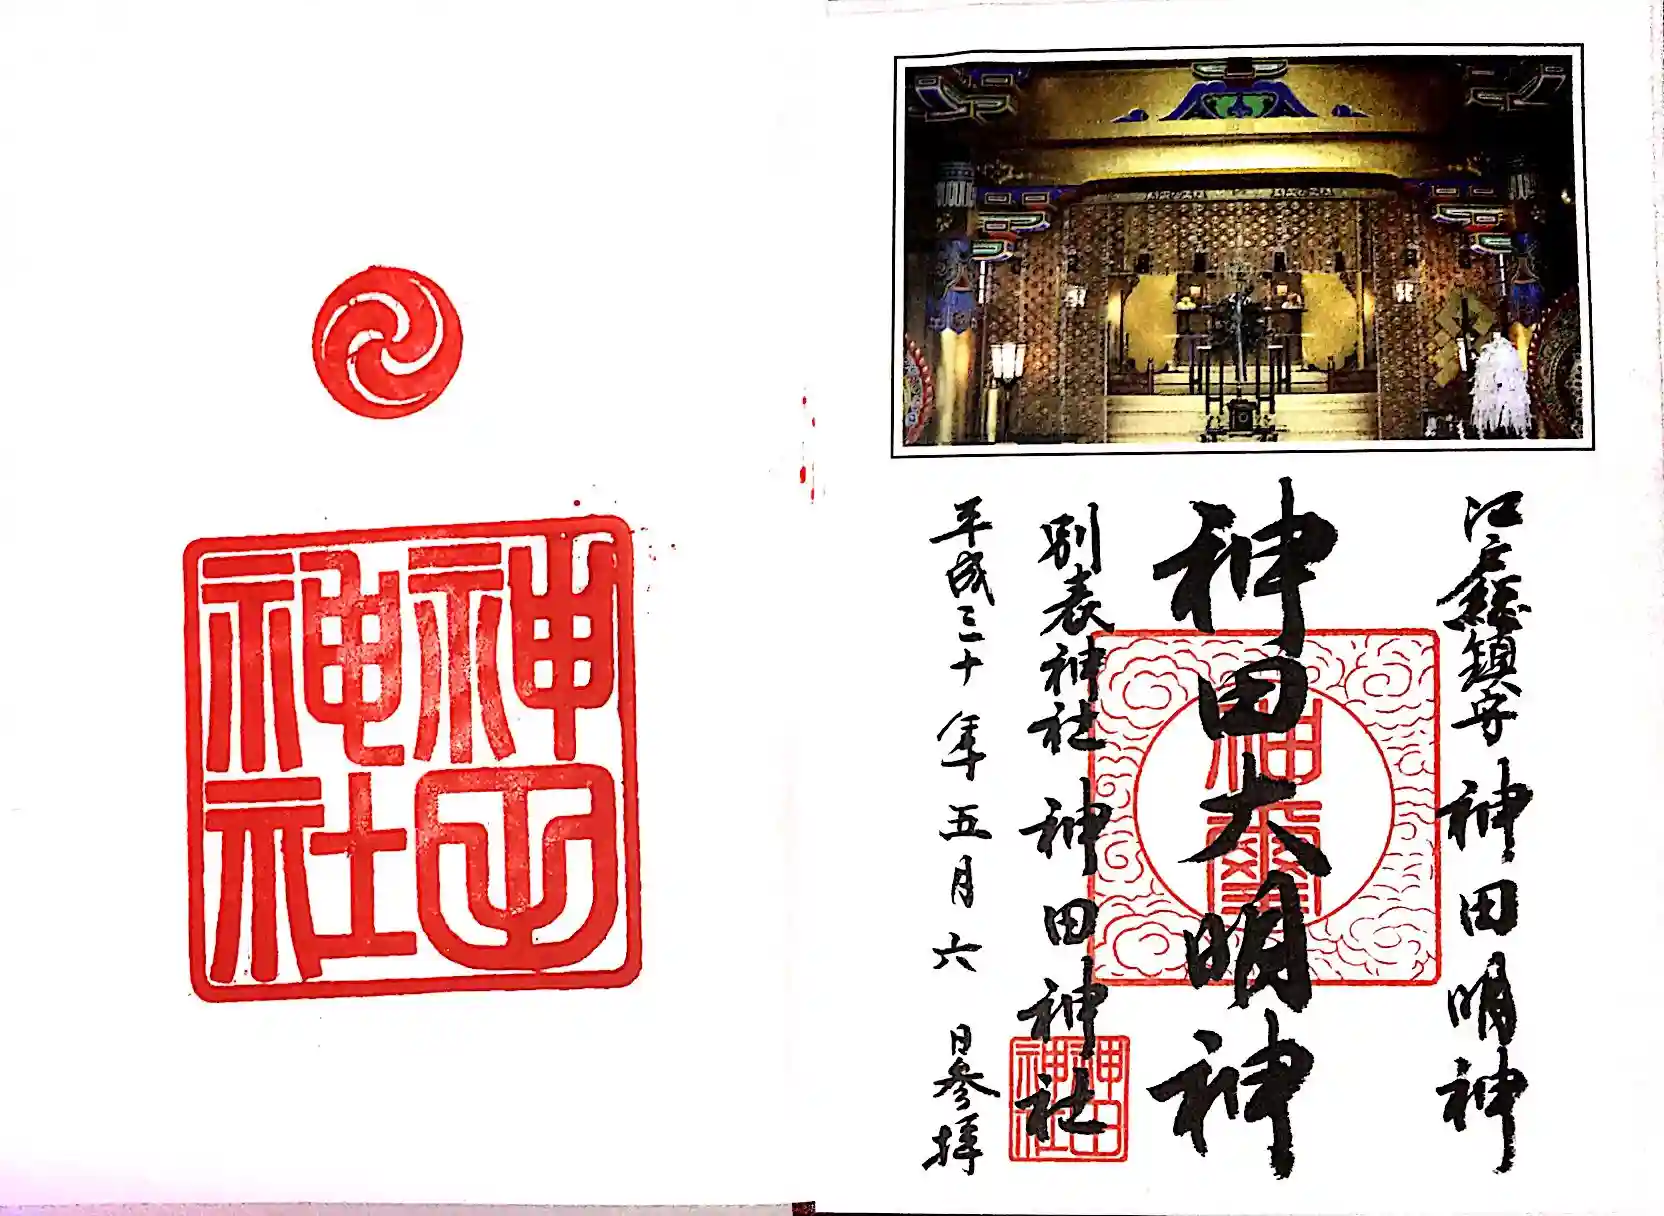 江戸総鎮守 神田明神
神田大明神
別表神社 神田神社
平成三十年五月六日参拝
神璽
神田神社
神田神社